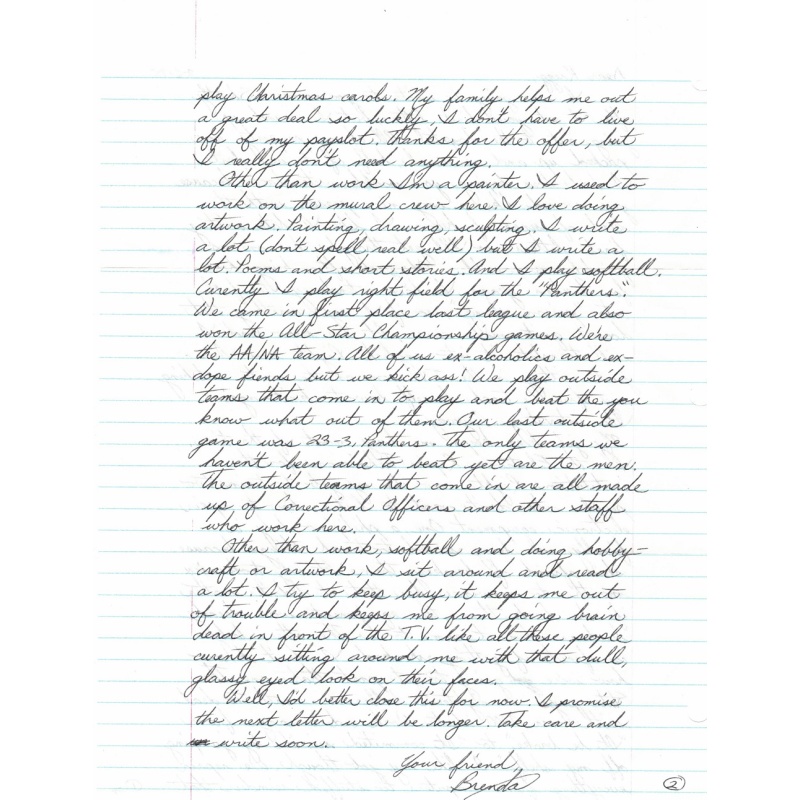 play Christmas carols. My family helps me out
a great deal so luckly, I don't have to live
off of my payslot. Thanks for the offer, but
I really don't need anything.
Other than work I'm a painter. I used to
work on the mural crew here. I love doing
artwork. Painting, drawing, sculpting. I write
a lot (don't spell real well) but I write a
lot. Poems and short stories. And I play softball.
Curently I play right field for the "Panthers".
We came in first place last league and also
won the All-Star Championship games. We're
the AA/NA team. All of us ex-alcoholics and ex-
dope fiends but we kick ass! We play outside
teams that come in to play and beat the you
know what out of them. Our last outside
game was 23-3, Panthers. The only teams we
haven't been able to beat yet are the men.
The outside teams that come in are all made
up of Correctional Officers and other staff
who work here.
Other than work, softball and doing hobby-
craft or artwork, I sit around and read
a lot. I try to keep busy, it keeps me out
of trouble and keeps me from going brain
dead in front of the T.V. like all these people
curently sitting around me with that dull,
glassy eyed look on their faces.
Well, I'd better close this for now. I promise
the next letter will be longer. Take care and
write soon.
Your friend,
Brenda
2